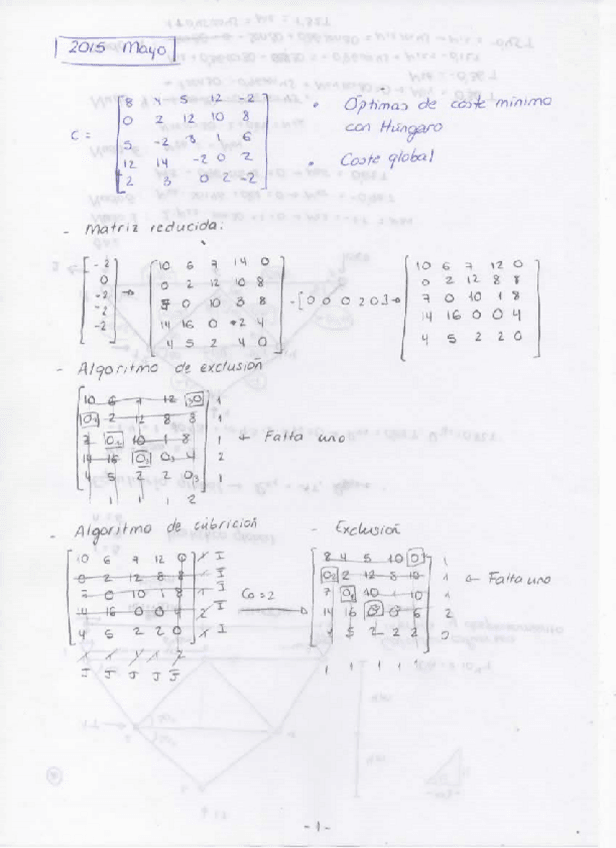 2015 Mayo
C =
8 4 5 12 -2
0 2 12 10 8
5 -2 3 1 6
12 14 -2 0 2
2 3 0 2 -2
• Optimas de coste minimo
con Húngaro
• Coste global
- Matriz reducida:
-2 0 -2 -2 -2
→
10 6 7 14 0
0 2 12 10 8
0 10 3 8
14 16 0 2 4
4 5 2 4 0
- [0 0 0 2 0] →
10 6 7 12 0
0 2 12 8 8
7 0 10 1 8
14 16 0 0 4
4 5 2 2 0
- Algoritmo de exclusión
10 6 7 12 0 1
0 2 12 8 8 1
7 0 10 1 8 1 ← Falta uno
14 16 0 0 4 2
4 5 2 2 0 1
1 1 1 2
- Algoritmo de cubrición
10 6 7 12 0 I
0 2 12 8 8 I
7 0 10 1 8 I
4 16 0 0 4 2 I
4 5 2 2 0 I
2
J J J J J
Co = 2
- Exclusión
8 4 5 10 0 1
0 2 12 8 10 1 ← Falta uno
7 0 10 1 10 1
14 16 0 0 6 2
5 2 2 2 0
1 1 1 1 1
- 1 -